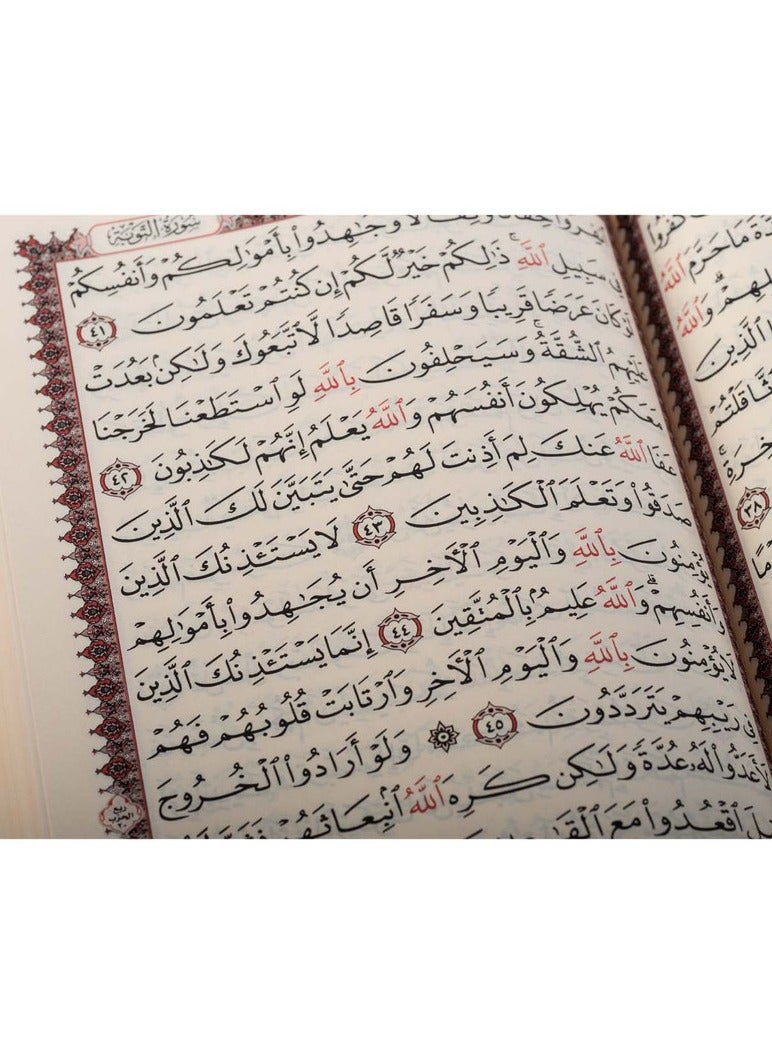 سُورَةُ التَّوْبَةِ
وَجَٰهِدُوا۟ بِأَمْوَٰلِكُمْ وَأَنفُسِكُمْ
فِي سَبِيلِ ٱللَّهِ ۚ ذَٰلِكُمْ خَيْرٌ لَّكُمْ إِن كُنتُمْ تَعْلَمُونَ ٤١
لَوْ كَانَ عَرَضًا قَرِيبًا وَسَفَرًا قَاصِدًا لَّٱتَّبَعُوكَ وَلَٰكِنۢ بَعُدَتْ
عَلَيْهِمُ ٱلشُّقَّةُ ۚ وَسَيَحْلِفُونَ بِٱللَّهِ لَوِ ٱسْتَطَعْنَا لَخَرَجْنَا
مَعَكُمْ يُهْلِكُونَ أَنفُسَهُمْ وَٱللَّهُ يَعْلَمُ إِنَّهُمْ لَكَٰذِبُونَ ٤٢
عَفَا ٱللَّهُ عَنكَ لِمَ أَذِنتَ لَهُمْ حَتَّىٰ يَتَبَيَّنَ لَكَ ٱلَّذِينَ
صَدَقُوا۟ وَتَعْلَمَ ٱلْكَٰذِبِينَ ٤٣ لَا يَسْتَـْٔذِنُكَ ٱلَّذِينَ
يُؤْمِنُونَ بِٱللَّهِ وَٱلْيَوْمِ ٱلْـَٔاخِرِ أَن يُجَٰهِدُوا۟ بِأَمْوَٰلِهِمْ
وَأَنفُسِهِمْ ۗ وَٱللَّهُ عَلِيمٌۢ بِٱلْمُتَّقِينَ ٤٤ إِنَّمَا يَسْتَـْٔذِنُكَ ٱلَّذِينَ
لَا يُؤْمِنُونَ بِٱللَّهِ وَٱلْيَوْمِ ٱلْـَٔاخِرِ وَٱرْتَابَتْ قُلُوبُهُمْ فَهُمْ
فِي رَيْبِهِمْ يَتَرَدَّدُونَ ٤٥ ۞ وَلَوْ أَرَادُوا۟ ٱلْخُرُوجَ
لَأَعَدُّوا۟ لَهُۥ عُدَّةً وَلَٰكِن كَرِهَ ٱللَّهُ ٱنۢبِعَاثَهُمْ فَثَبَّطَهُمْ
ٱقْعُدُوا۟ مَعَ
ربع
الحزب
٢٠
مَا حَرَّمَ ٱللَّهُ
وَٱللَّهُ
ٱلَّذِينَ
ٱثَّاقَلْتُمْ
٣٨